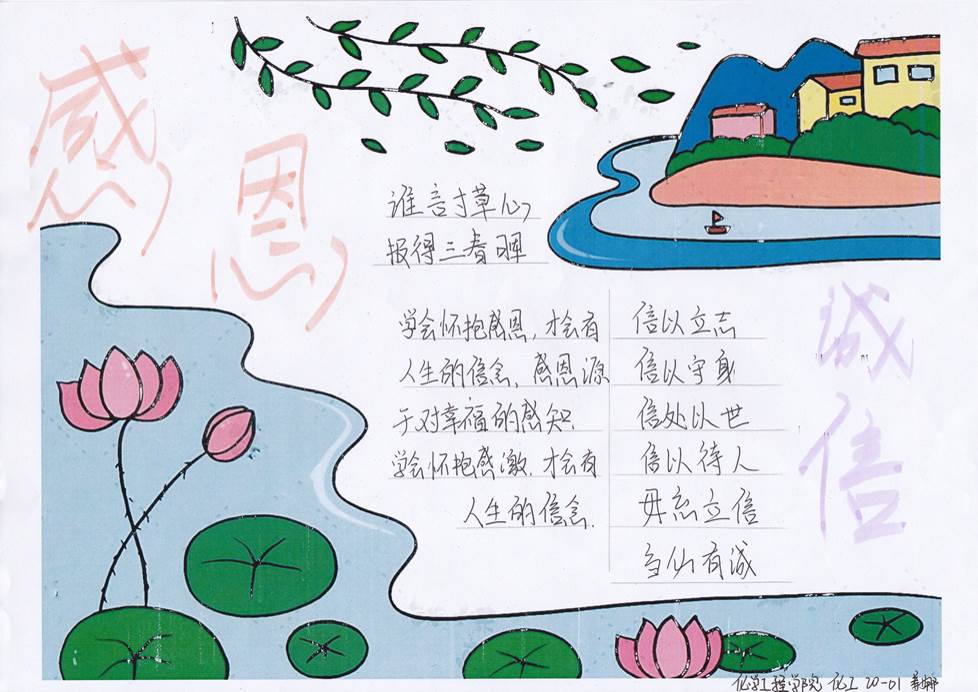 感恩
谁言寸草心
报得三春晖
学会怀抱感恩,才会有
人生的信念,感恩源
于对幸福的感知.
学会怀抱感激.才会有
人生的信念.
诚信
信以立志
信以守身
信处以世
信以待人
毋忘立信
有诚
化学工程学院 化工 20-01